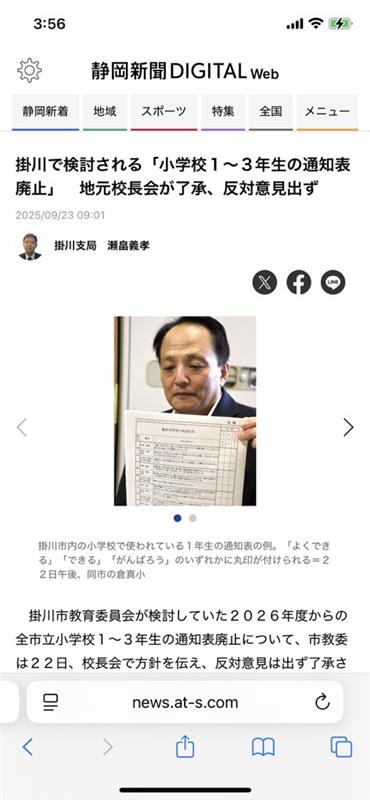 3:56
静岡新聞DIGITAL Web
静岡新着
地域
スポーツ
特集
全国
メニュー
掛川で検討される「小学校１～３年生の通知表
廃止」　地元校長会が了承、反対意見出ず
2025/09/23 09:01
掛川支局　瀬畠義孝
X
f
LINE
掛川市内の小学校で使われている１年生の通知表の例。「よくでき
る」「できる」「がんばろう」のいずれかに丸印が付けられる＝２
２日午後、同市の倉真小
　掛川市教育委員会が検討していた２０２６年度からの
全市立小学校１～３年生の通知表廃止について、市教委
は２２日、校長会で方針を伝え、反対意見は出ず了承さ
news.at-s.com